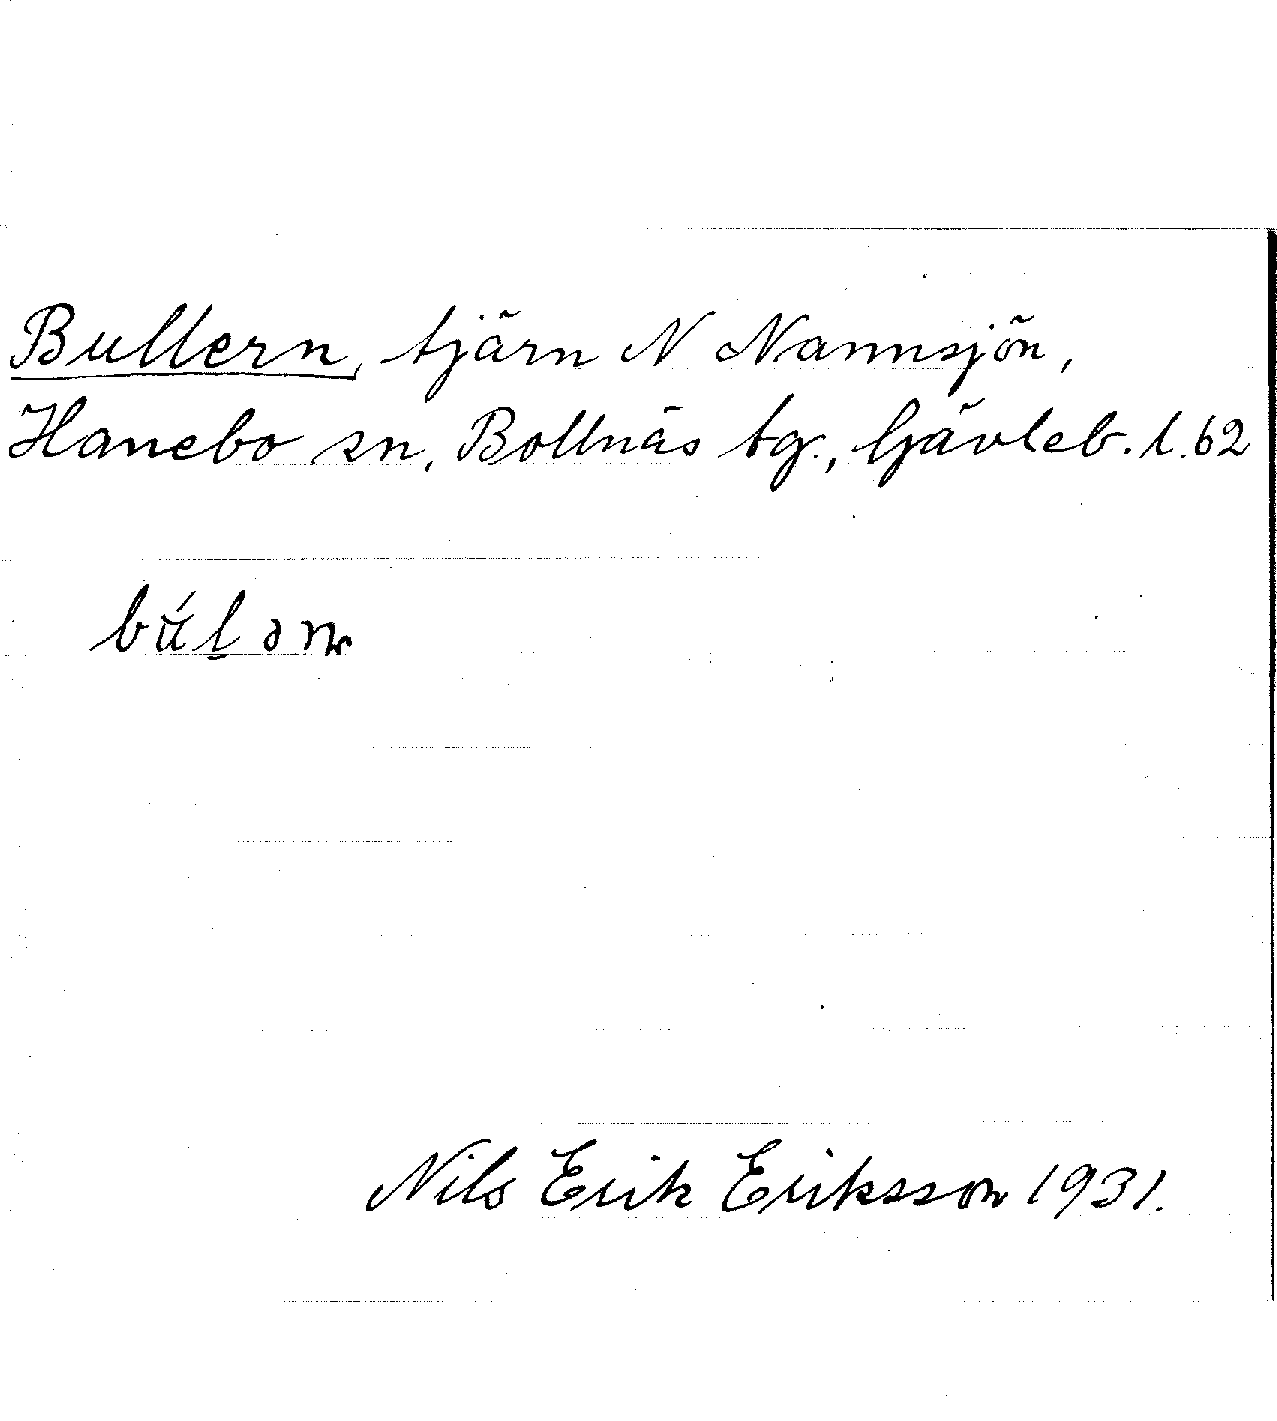 Bullern, tjärn N Nannsjön,
Hanebo sn, Bollnäs tg., Gävleb. l. 62
Nils Erik Eriksson 1931.